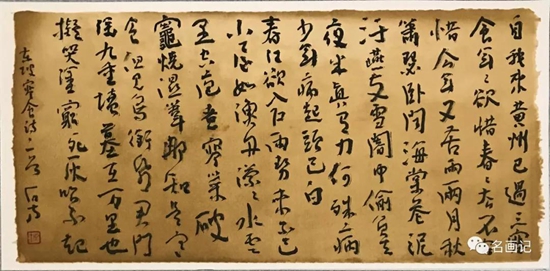 自我來黃州已過三寒
食年〻欲惜春〻去不
惜今年又苦雨兩月秋
蕭瑟卧聞海棠花泥
汙燕支雪闇中偷負
夜半真有力何殊病
少年病起頭已白
春江欲入户雨勢來不已
小屋如漁舟濛〻水雲
里空庖煮寒菜破
竈燒濕葦那知是寒
食但見烏銜帋君門
深九重墳墓在万里也
擬哭塗窮死灰吹不起
東坡寒食詩二首
名画记